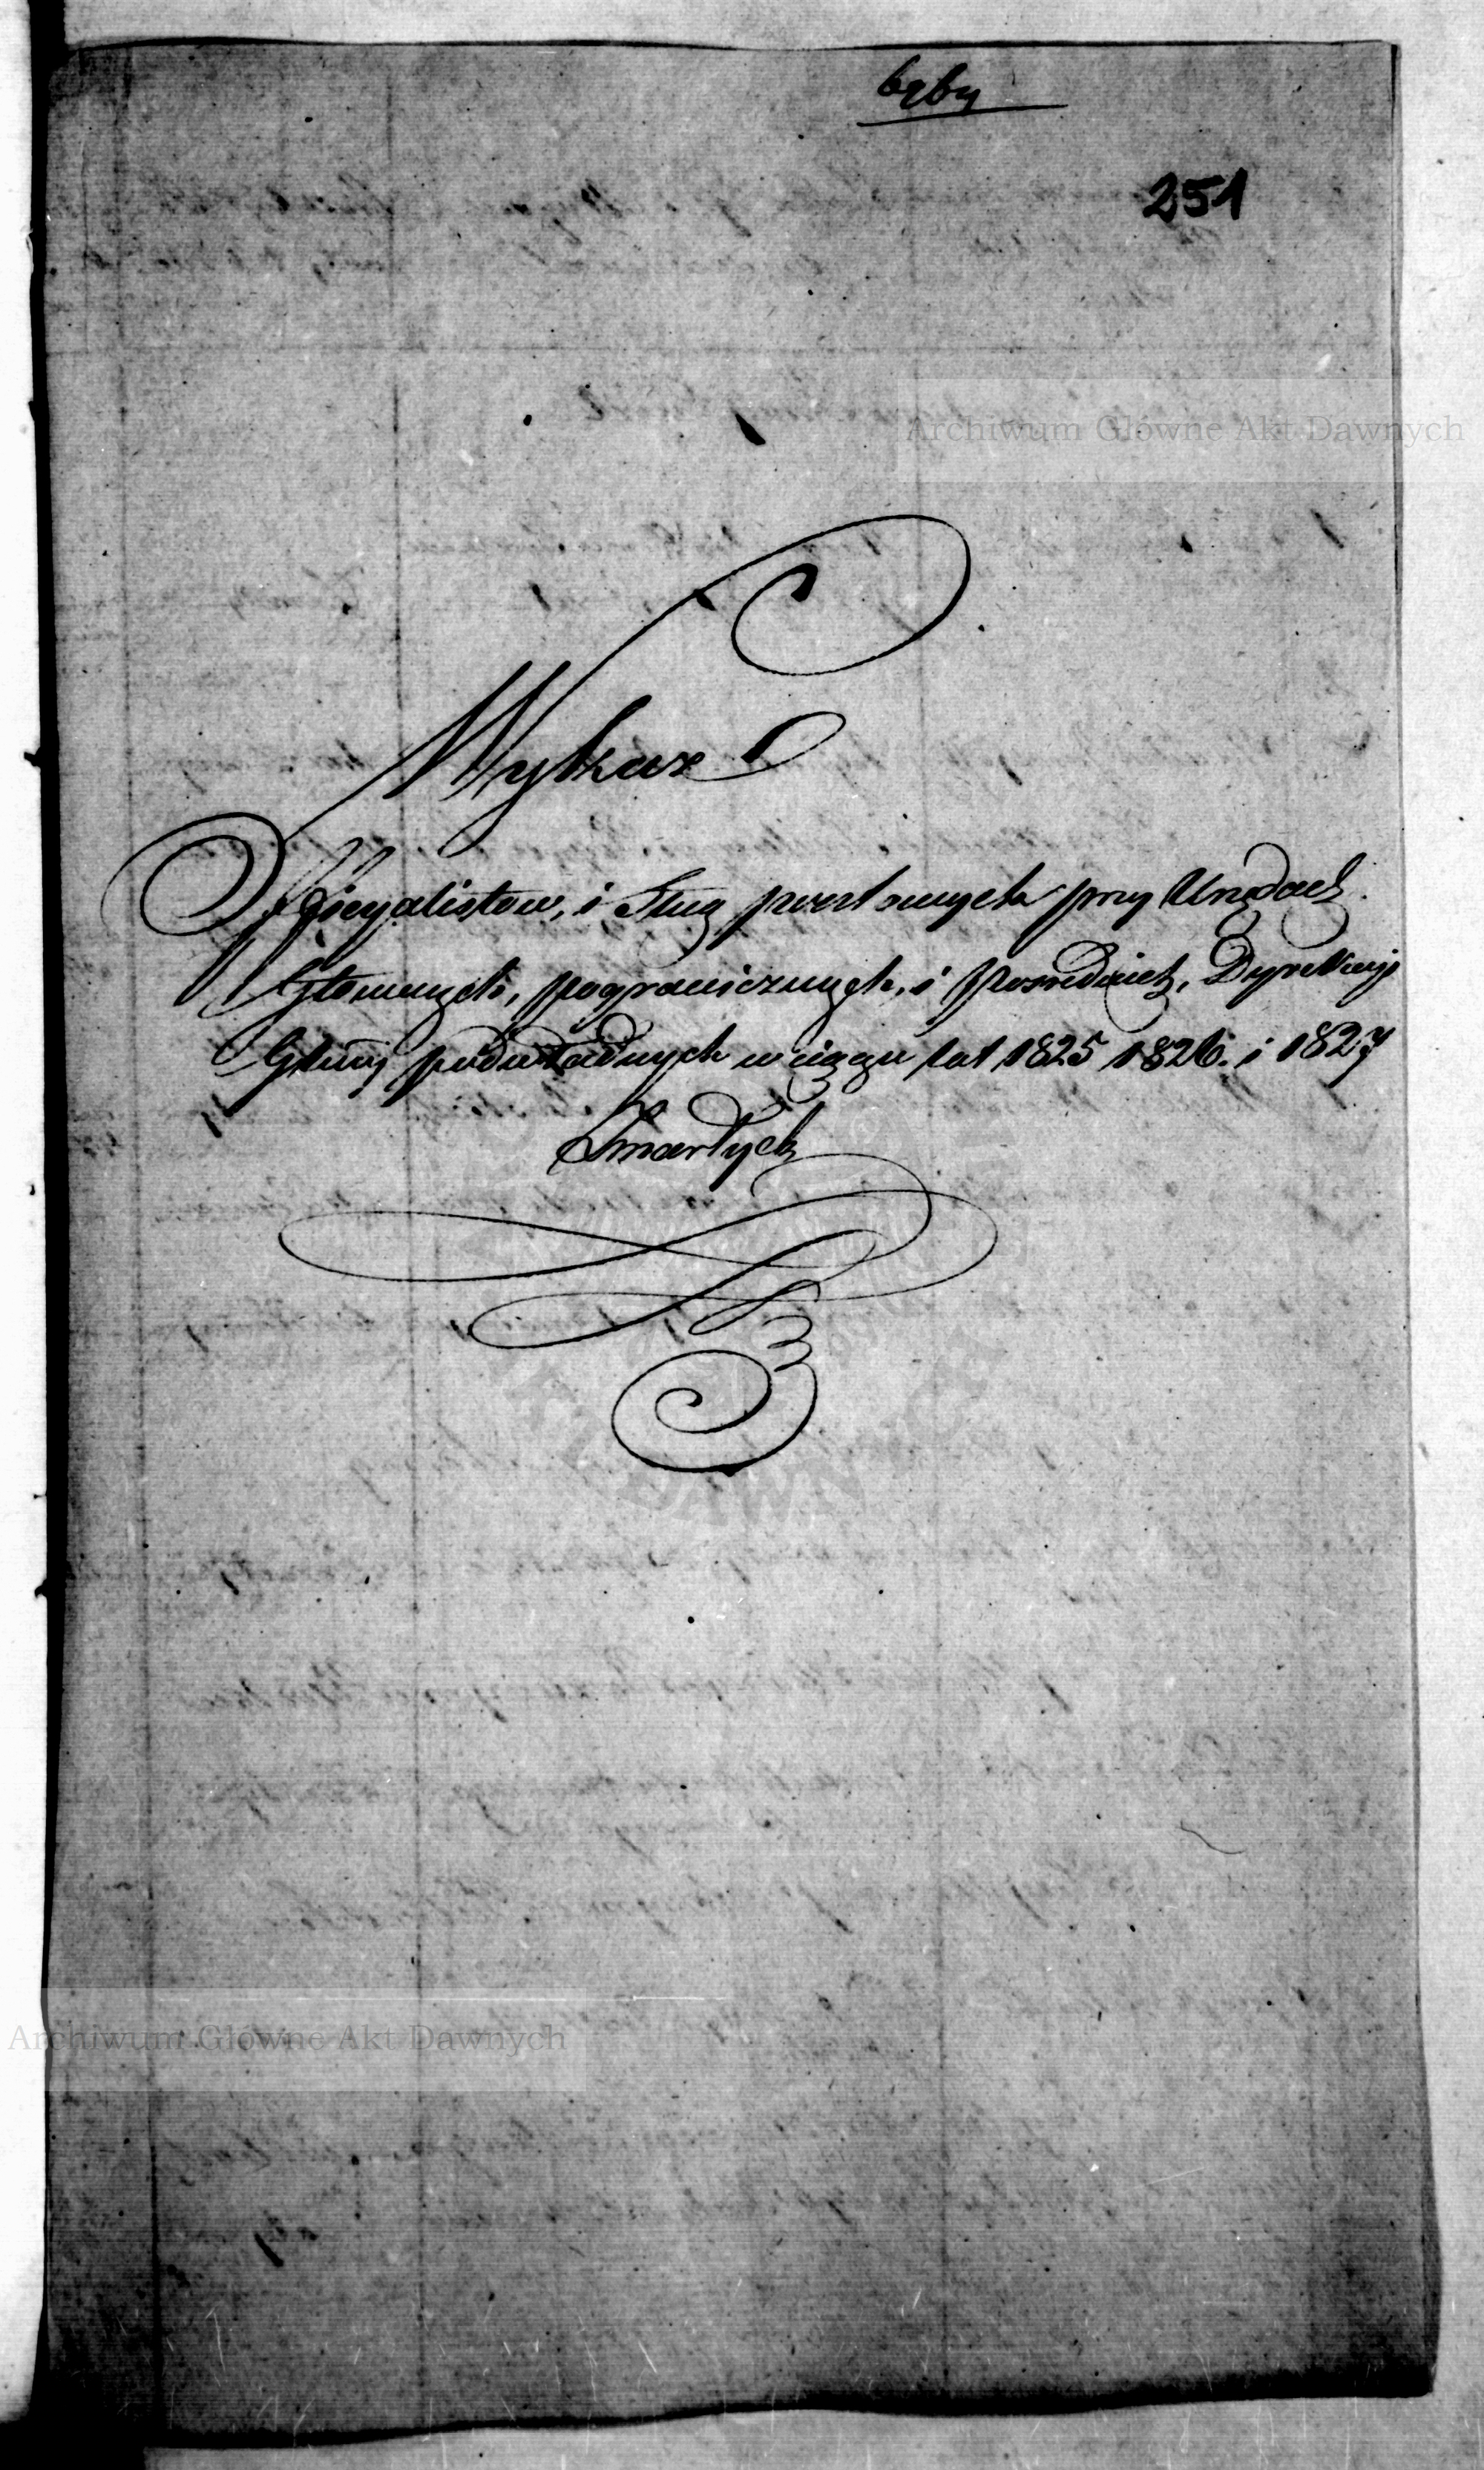 251
Archiwum Główne Akt Dawnych
Wykaz
Officyalistow, i Sług pocztowych przy Urzędach
Głownych, pogranicznych, i Posrednich, Dyrekcyi
Głłney podwładnych w ciągu lat 1825 1826. i 1827
Zmarłych
Archiwum Główne Akt Dawnych